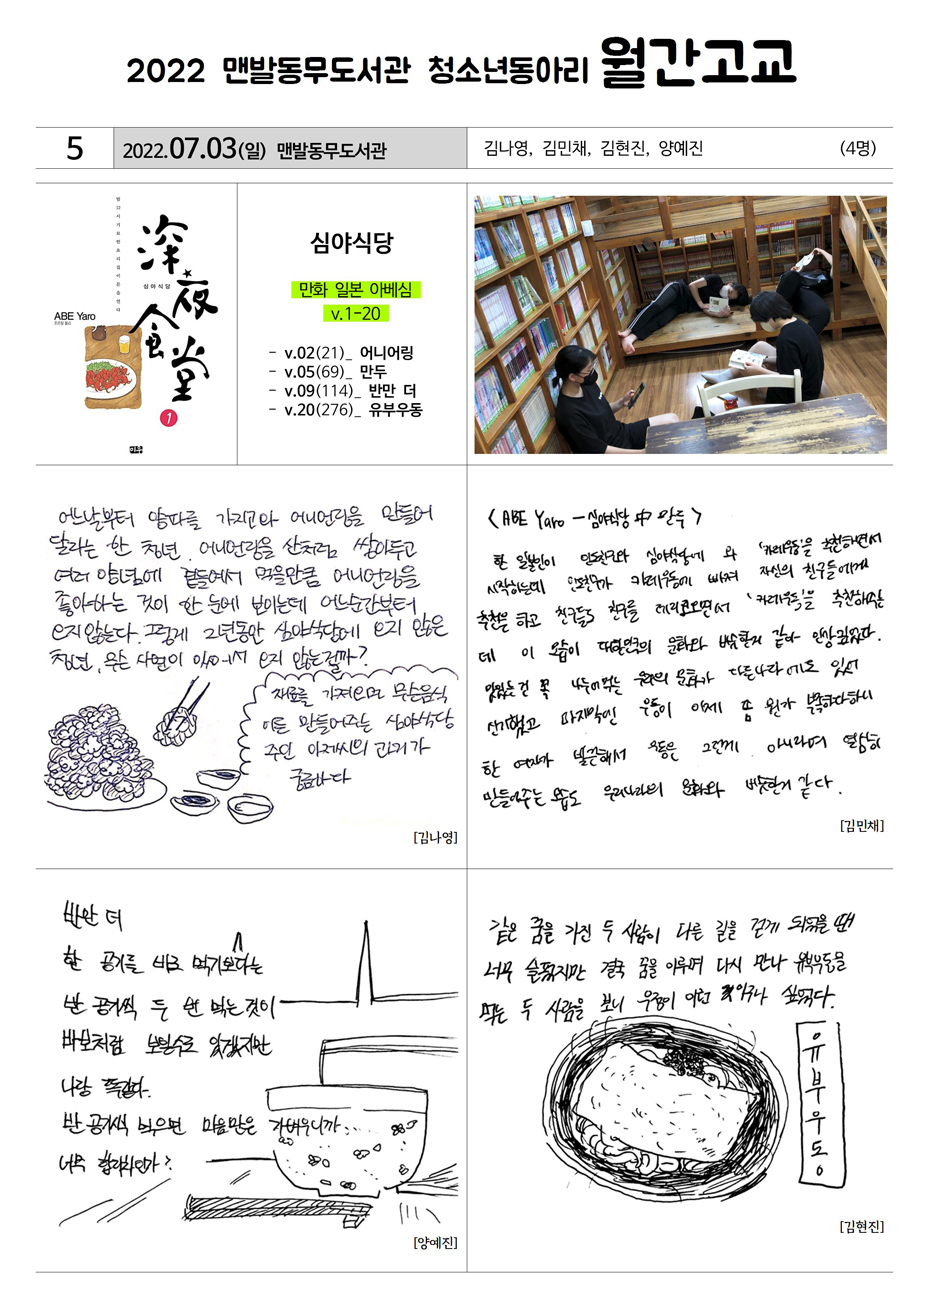 2022 맨발동무도서관 청소년동아리 월간고교
5
2022.07.03(일) 맨발동무도서관
김나영, 김민채, 김현진, 양예진
(4명)
深夜食堂
심야식당
ABE Yaro
1
미우
심야식당
만화 일본 아베심
v.1-20
- v.02(21)_ 어니어링
- v.05(69)_ 만두
- v.09(114)_ 반만 더
- v.20(276)_ 유부우동
어느날부터 양파를 가지고와 어니언링을 만들어
달라는 한 청년. 어니언링을 산처럼 쌓아두고
여러 양념에 곁들여서 먹을만큼 어니언링을
좋아하는 것이 한 눈에 보이는데 어느순간부터
오지않는다. 그렇게 2년동안 심야식당에 오지 않은
청년, 무슨 사연이 있어서 오지 않는걸까?
재료를 가져오면 무슨음식
이든 만들어주는 심야식당
주인 아저씨의 과거가
궁금하다
[김나영]
<ABE Yaro - 심야식당 中 만두>
한 일본인이 심야식당에 와 '카레우동'을 추천하면서
시작하는데 카레우동에 빠져 자신의 친구들에게
추천을 하고 친구들도 친구를 데리고오면서 '카레우동'을 추천해주는
데 이 모습이 대한민국의 문화와 비슷한거 같다 인상깊었다.
맛있는건 꼭 나눠먹는 우리의 문화가 다른나라에도 있어
신기했고 마지막엔 우동이 이제 좀 뭔가 부족하다하니
한 여자가 발끈해서 우동은 그런게 아니라며 열심히
만들어주는 모습도 우리나라의 문화와 비슷한거 같다.
[김민채]
반만 더
한 공기를 비우고 먹기보다는
반 공기씩 두 번 먹는것이
바보처럼 보일수도 있겠지만
나랑 똑같다.
반 공기씩 먹으면 마음만은 가벼우니까..
너무 합리적인가?
[양예진]
같은 꿈을 가진 두 사람이 다른 길을 걷게 되었을 때
너무 슬펐지만 결국 꿈을 이루며 다시 만나 유부우동을
먹는 두 사람을 보니 우정이 이런 거구나 싶었다.
유부우동
[김현진]